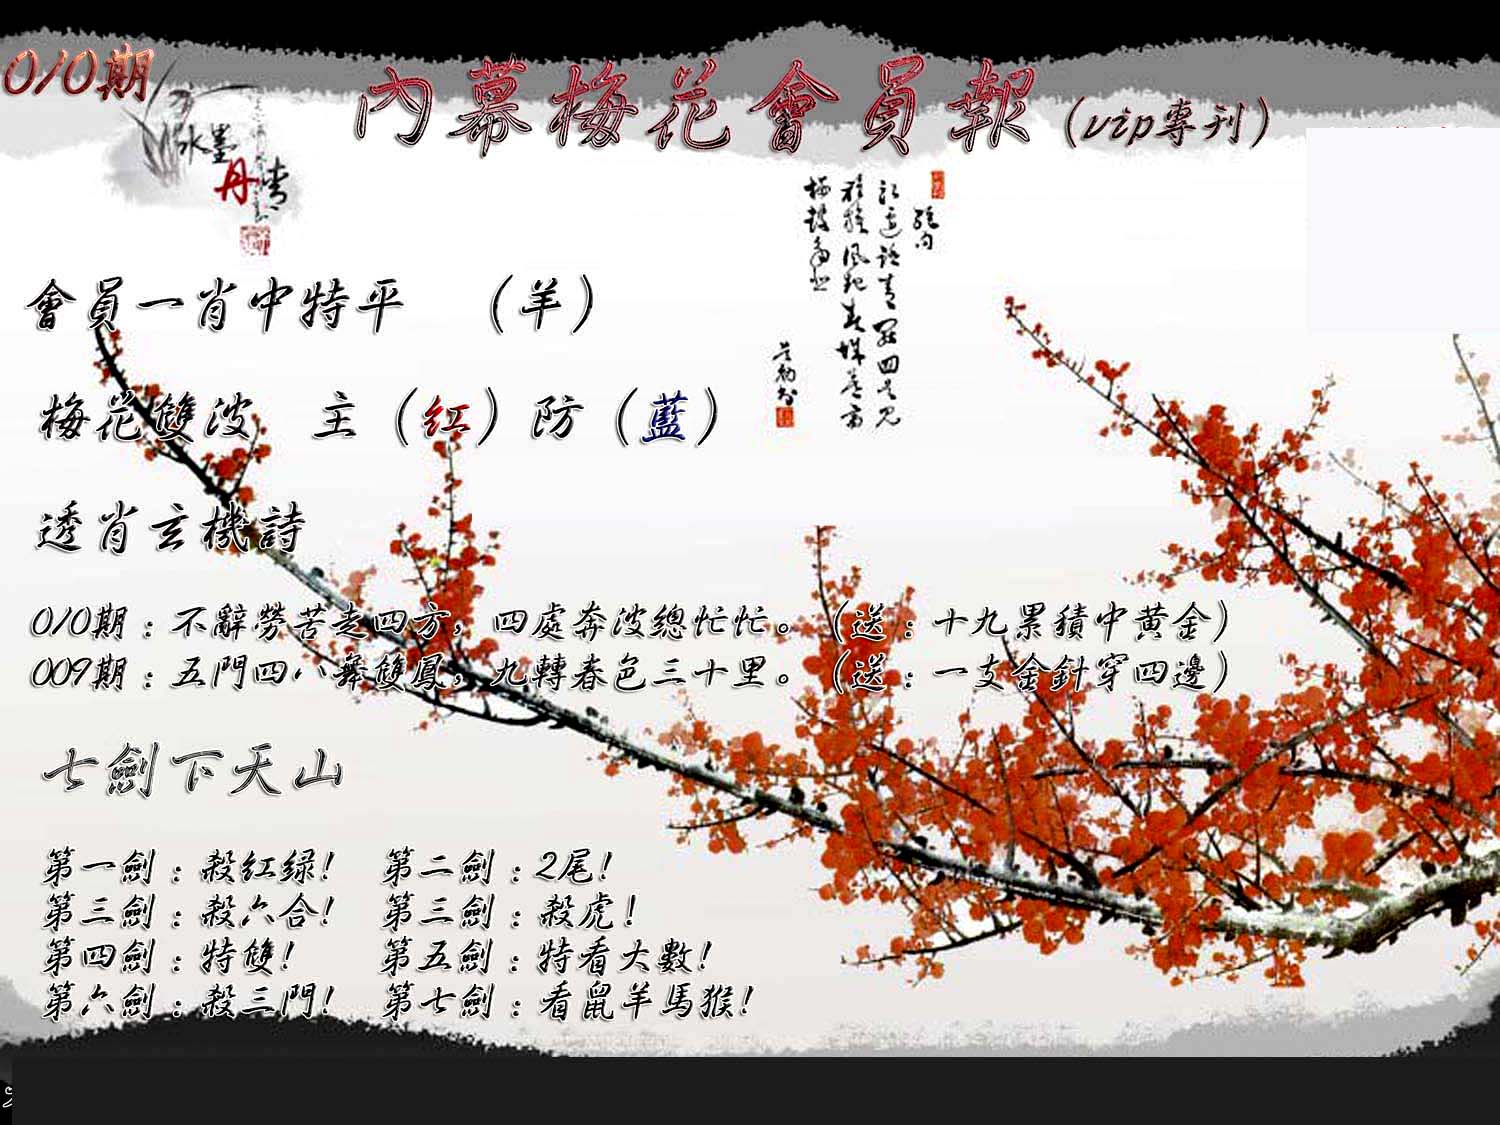 010期
內幕梅花會員報（vip專刊）
水墨
丹青
會員一肖中特平 （羊）
梅花雙波 主（紅）防（藍）
透肖玄機詩
010期：不辭勞苦走四方，四處奔波總忙忙。（送：十九累積中黄金）
009期：五門四八舞雙鳳，九轉春色三十里。（送：一支金針穿四邊）
七劍下天山
第一劍：殺紅緑！ 第二劍：2尾！
第三劍：殺六合！ 第三劍：殺虎！
第四劍：特雙！ 第五劍：特看大數！
第六劍：殺三門！ 第七劍：看鼠羊馬猴！